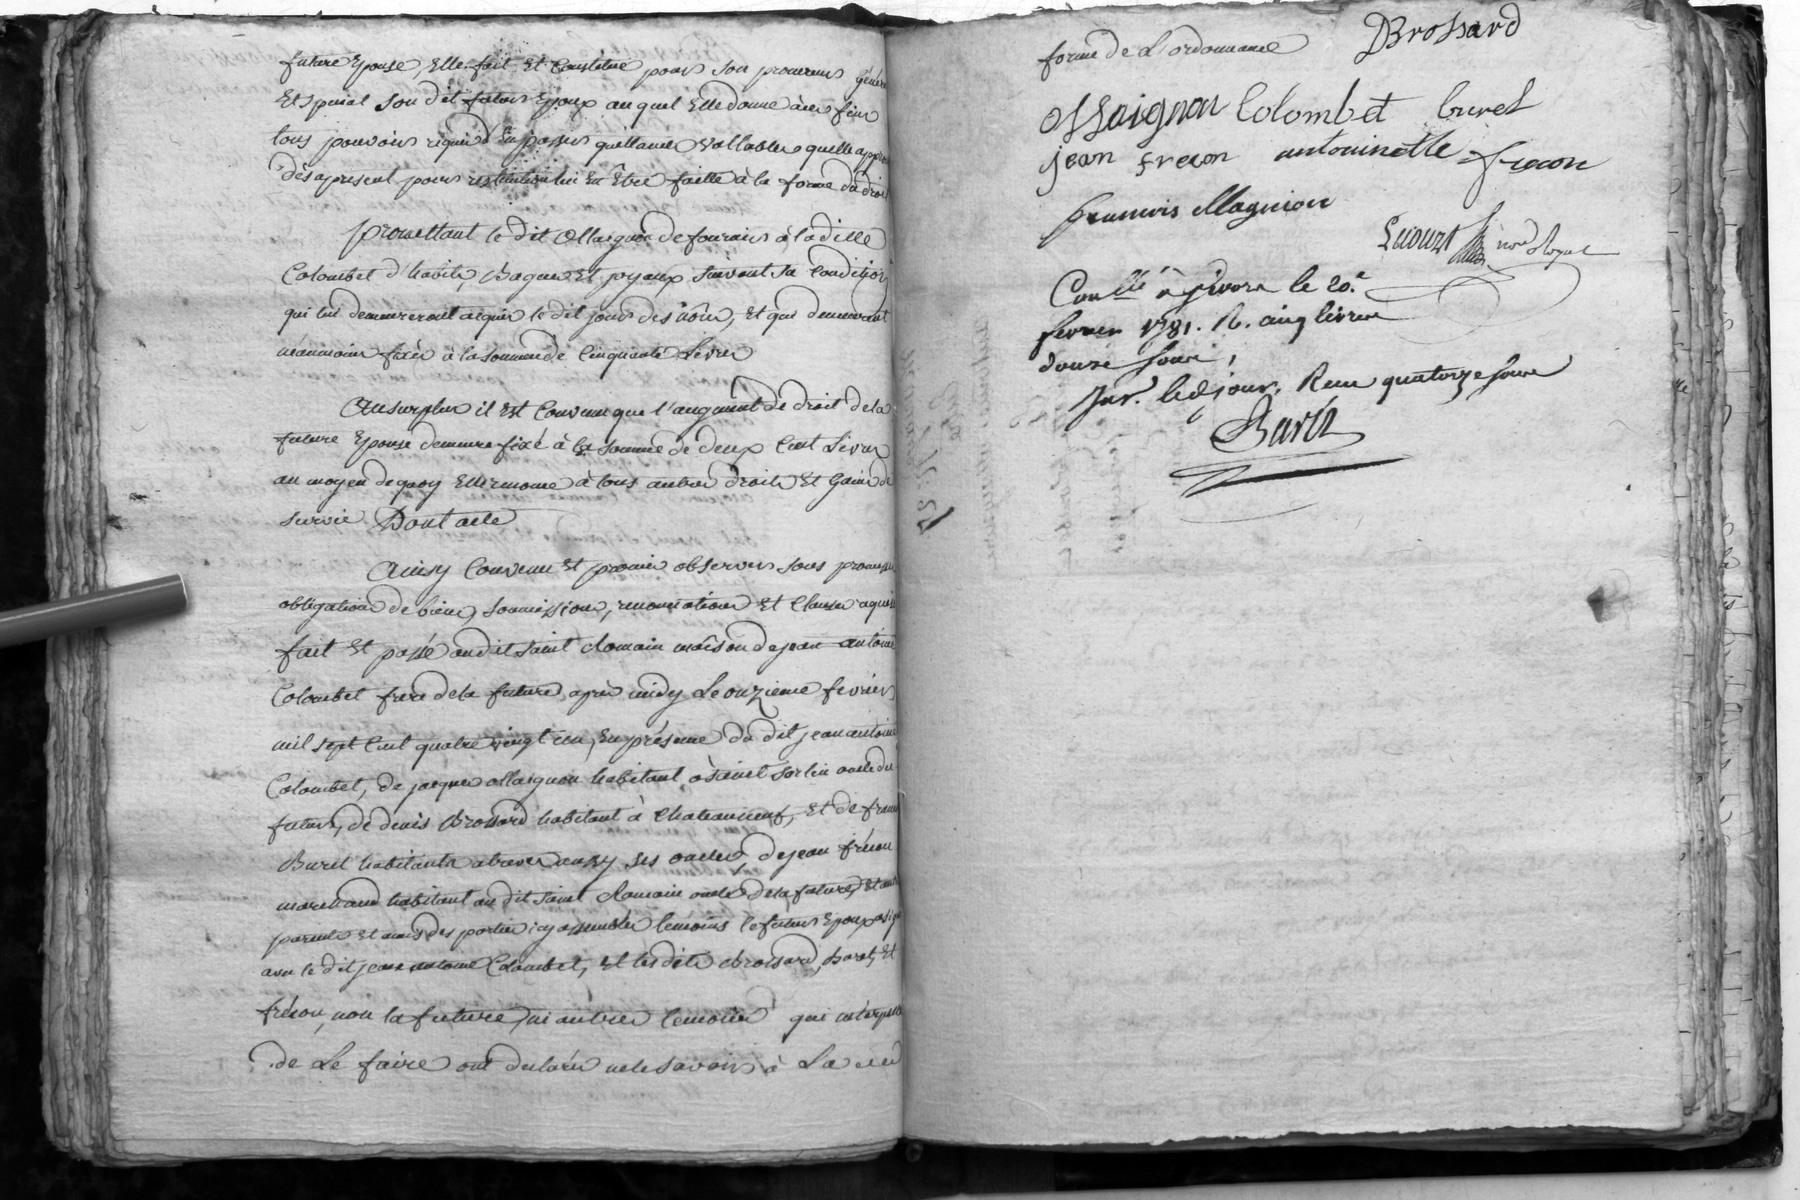 future Epouse, Elle fait Et Constitue pour son procureur généra
Et Special son dit futur Epoux au quel Elle donne à ces fins
tous pouvoirs requis d'En passer quittance vallables quelle approu
dès apresent pour restitution lui En Etre faitte à la forme du droit
promettant le dit Massgnon de fournir à la ditte
Colombet d'habits, Bagues Et joyaux suivant sa Condition
qui lui demeureront acquis le dit jour des nôces, Et qui demeurent
néanmoins fixés à la somme de Cinquante Livres
Au surplus il Est Convenu que l'augment de droit de la
future Epouse demeure fixé à la somme de deux Cent Livres
au moyen de quoy Elle renonce à tous autres droits Et Gains de
survie Dont acte
Ainsy Convenu Et promis observer sous promesses
obligations de biens, soumissions, renonciations Et Clauses requises
fait Et passé au dit Saint Romain maison de jean antoine
Colombet frere de la future, après midy Le onzieme fevrier
mil sept Cent quatre vingt un, En présence du dit jean antoine
Colombet, de jacques Massgnon habitant à Saint Sorlin oncle du
futur, de denis Brossard habitant à Chateauneuf, Et de francois
Buret habitants a traves aussy ses oncles, de jean frécon
marchand habitant au dit Saint Romain oncle de la future, Et autres
parents Et amis des parties icy assemblés temoins le futur Epoux a signé
avec le dit jean antoine Colombet, Et les dits Brossard, Buret, Et
frécon, non la future, ni autres temoins qui interpellés
de Le faire ont declarés ne le savoir à La
forme de L'ordonnance DBrossard
Massignon Colombet buret
jean frecon antoinette frecon
francois Magnion
Not. Royal
Conllé à Givors le 20.e
fevrier 1781. R. cinq livres
douze sous,
Ins. led jour. Recu quatorze sous